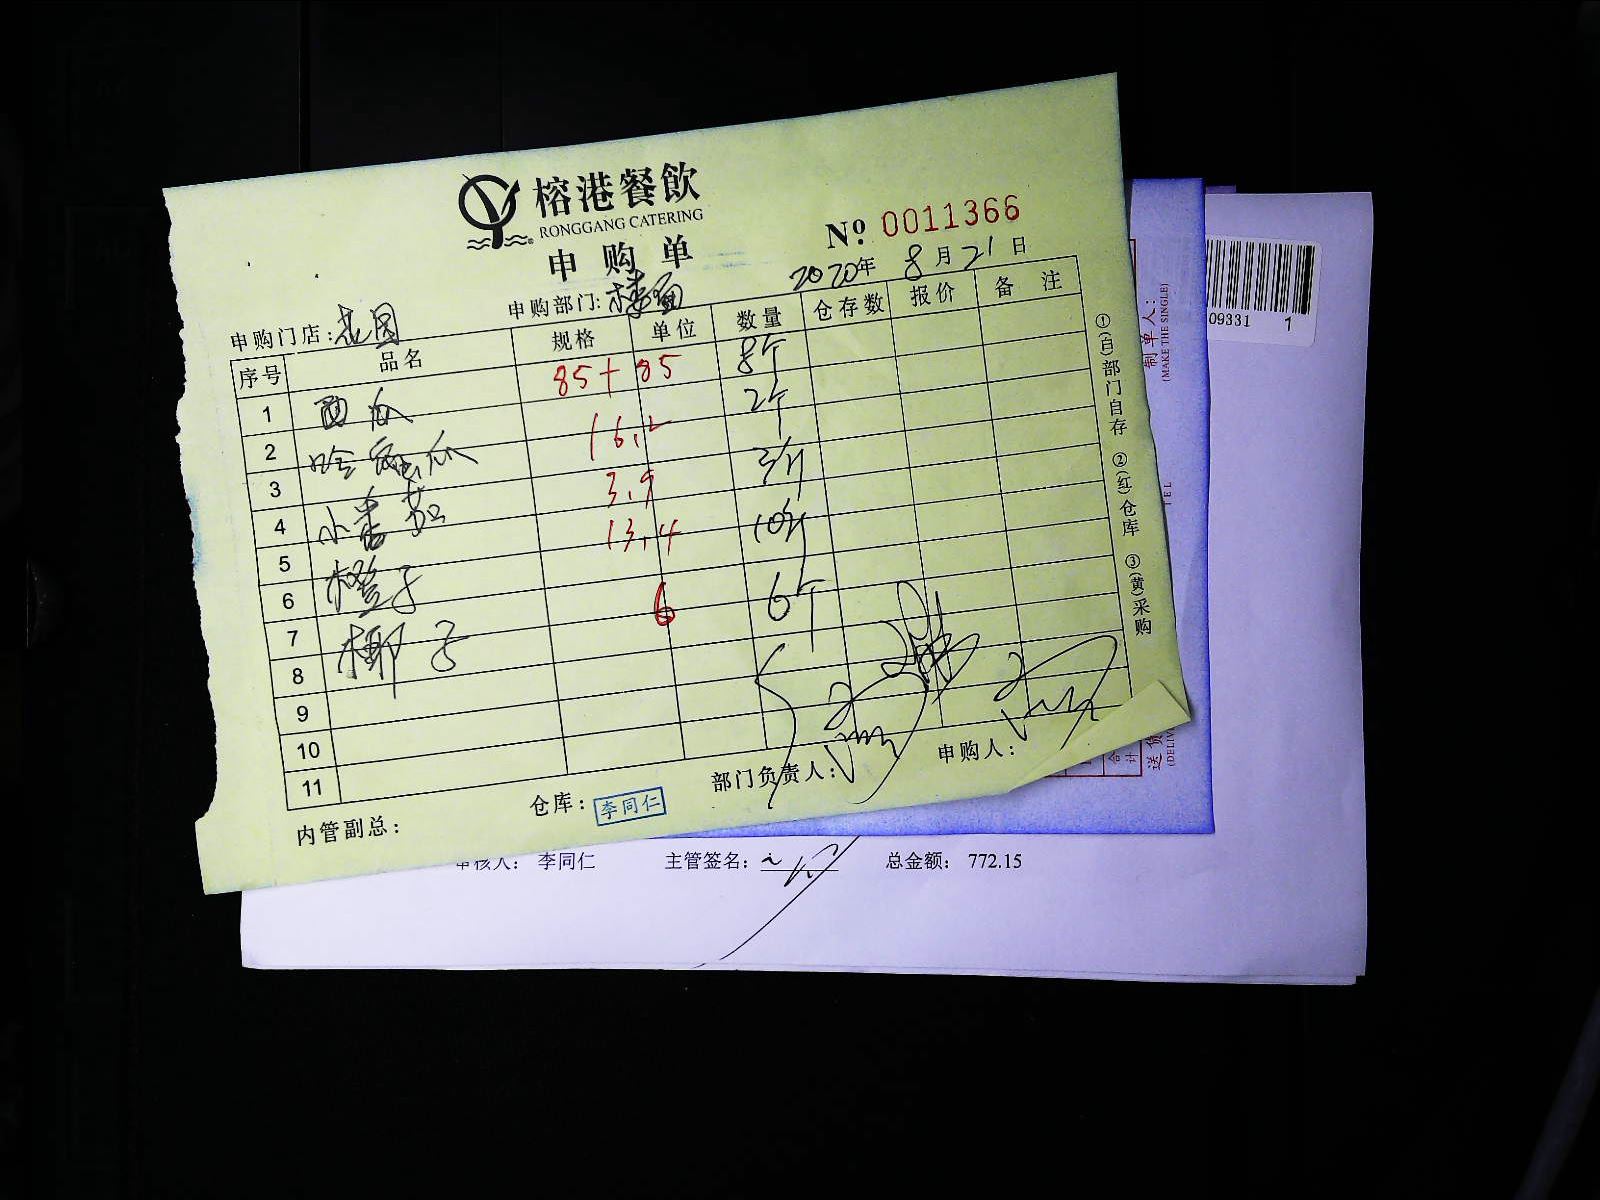 榕港餐飲
RONGGANG CATERING
申购单
№ 0011366
2020年 8月21日
申购门店：花园 申购部门：楼面
序号 品名 规格 单位 数量 仓存数 报价 备注
1 西瓜 85+85 8个
2 哈密瓜 16.2 2个
3
4 小番茄 3.9 3斤
5 13.4 10斤
6 橙子
7 6 6个
8 椰子
9
10
11
内管副总： 仓库：李同仁 部门负责人： 申购人：
①(白)部门自存 ②(红)仓库 ③(黄)采购
制单人：
(MAKE THE SINGLE)
TEL
合计
送货
(DELIV
09331 1
审核人： 李同仁 主管签名： 总金额： 772.15